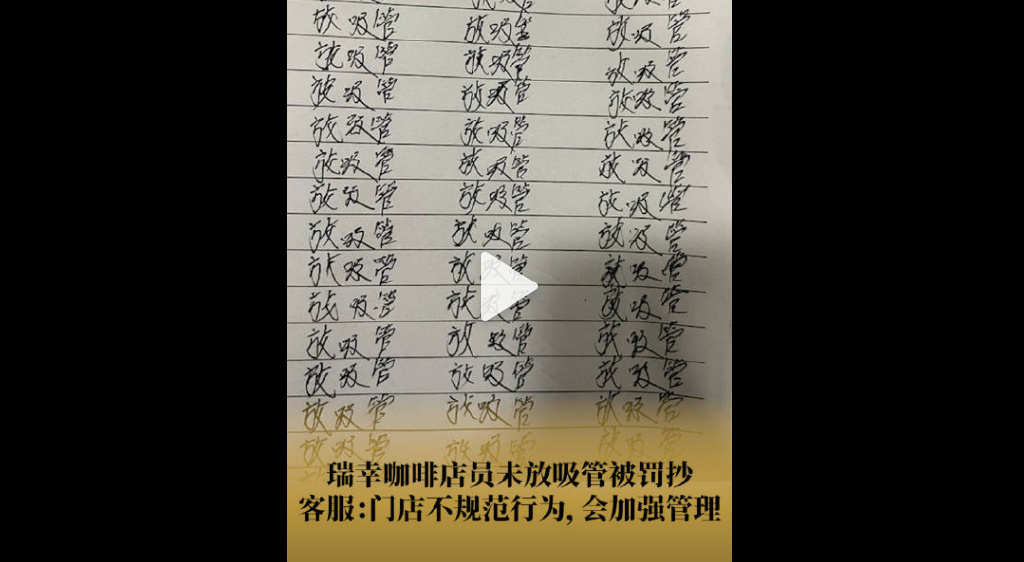 放吸管 放吸管 放吸管
放吸管 放吸管 放吸管
放吸管 放吸管 放吸管
放吸管 放吸管 放吸管
放吸管 放吸管 放吸管
放吸管 放吸管 放吸管
放吸管 放吸管 放吸管
放吸管 放吸管 放吸管
放吸管 放吸管 放吸管
放吸管 放吸管 放吸管
放吸管 放吸管 放吸管
放吸管 放吸管 放吸管
放吸管 放吸管 放吸管
瑞幸咖啡店员未放吸管被罚抄
客服:门店不规范行为,会加强管理